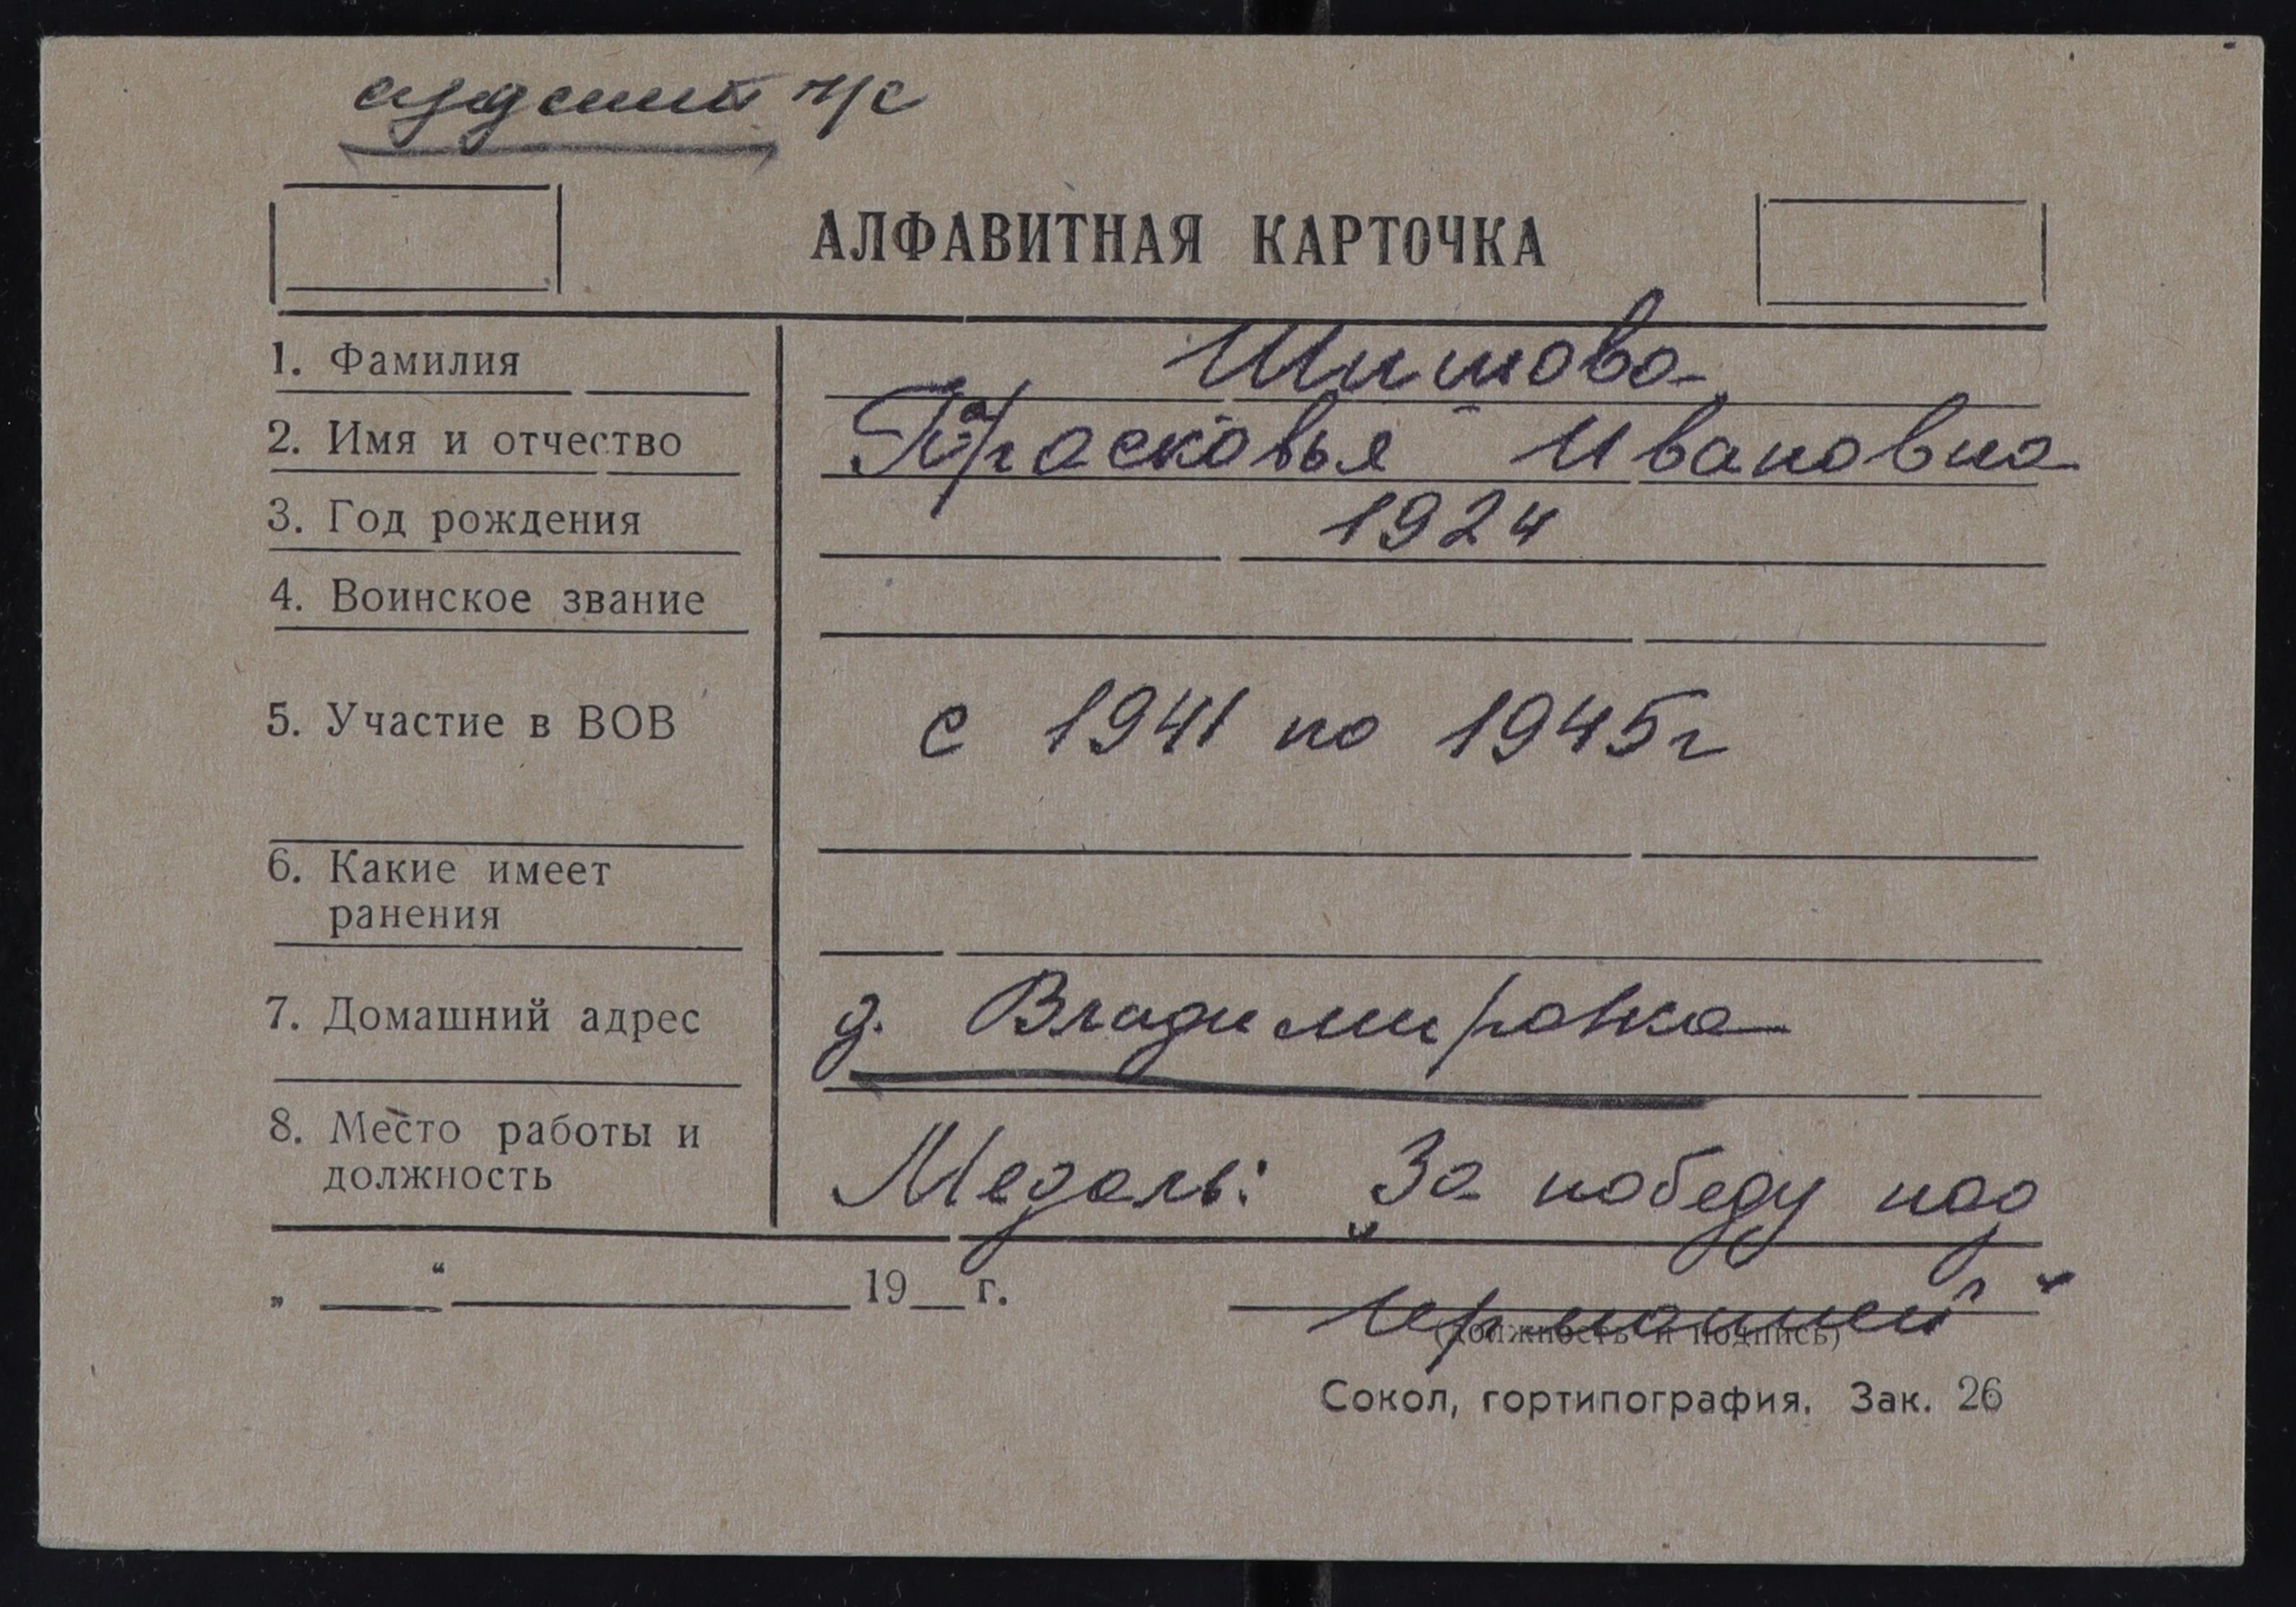 с/с
АЛФАВИТНАЯ КАРТОЧКА
1. Фамилия Шишова
2. Имя и отчество Прасковья Ивановна
3. Год рождения 1924
4. Воинское звание
5. Участие в ВОВ с 1941 по 1945г
6. Какие имеет
ранения
7. Домашний адрес д. Владимировка
8. Место работы и
должность Медаль: „За победу над
Германией“
„ “ 19 г.
(должность и подпись)
Сокол, гортипография. Зак. 26